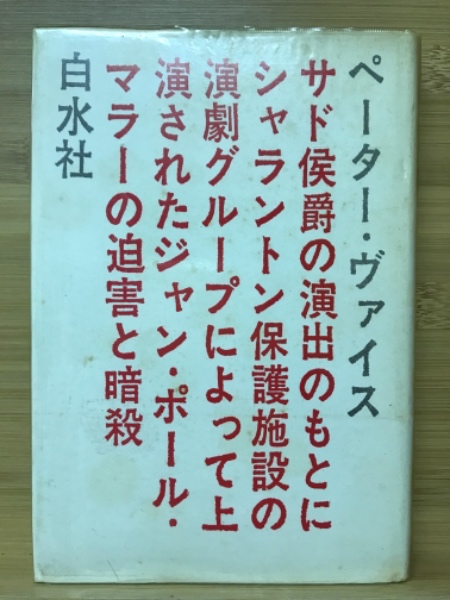 ペーター・ヴァイス
サド侯爵の演出のもとに
シャラントン保護施設の
演劇グループによって上
演されたジャン・ポール・
マラーの迫害と暗殺
白水社